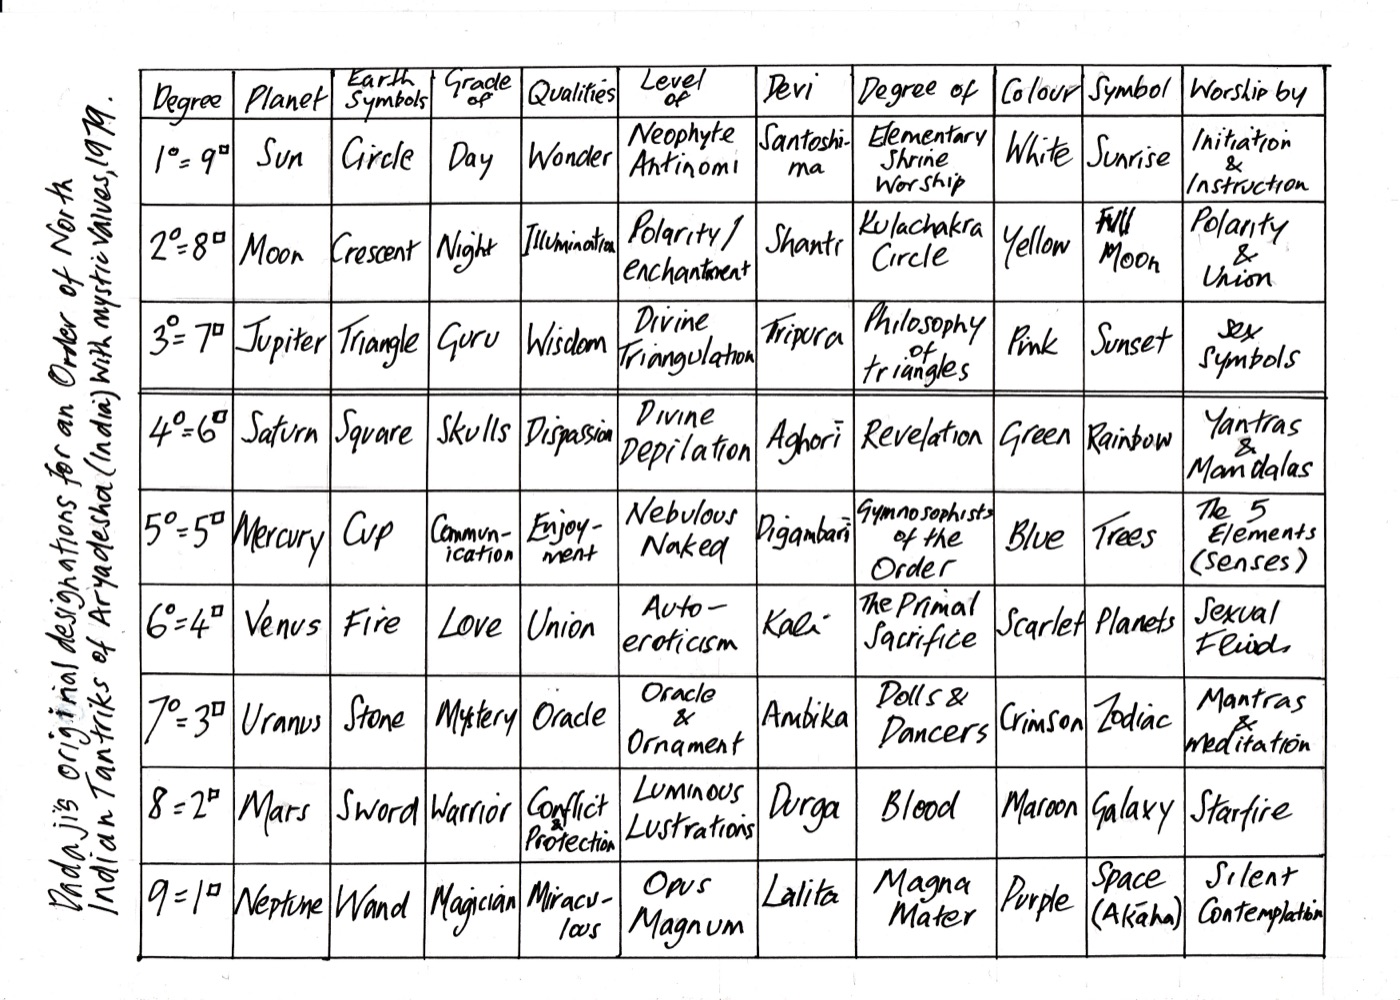 Dadaji's original designations for an Order of North
Indian Tantriks of Aryadesha (India) with mystic values, 1979.
Degree Planet Earth Symbols Grade of Qualities Level of Devi Degree of Colour Symbol Worship by
1°=9□ Sun Circle Day Wonder Neophyte Antinomi Santoshi-ma Elementary Shrine Worship White Sunrise Initiation & Instruction
2°=8□ Moon Crescent Night Illumination Polarity/enchantment Shanti Kulachakra Circle Yellow Full Moon Polarity & Union
3°=7□ Jupiter Triangle Guru Wisdom Divine Triangulation Tripura Philosophy of triangles Pink Sunset Sex Symbols
4°=6□ Saturn Square Skulls Dispassion Divine Depilation Aghorī Revelation Green Rainbow Yantras & Mandalas
5°=5□ Mercury Cup Commun-ication Enjoy-ment Nebulous Naked Digambarī Gymnosophists of the Order Blue Trees The 5 Elements (senses)
6°=4□ Venus Fire Love Union Auto-eroticism Kali The Primal Sacrifice Scarlet Planets Sexual Fluids
7°=3□ Uranus Stone Mystery Oracle Oracle & Ornament Ambika Dolls & Dancers Crimson Zodiac Mantras & meditation
8=2□ Mars Sword Warrior Conflict & Protection Luminous Lustrations Durga Blood Maroon Galaxy Starfire
9=1□ Neptune Wand Magician Miracu-lous Opus Magnum Lalita Magna Mater Purple Space (Akāha) Silent Contemplation